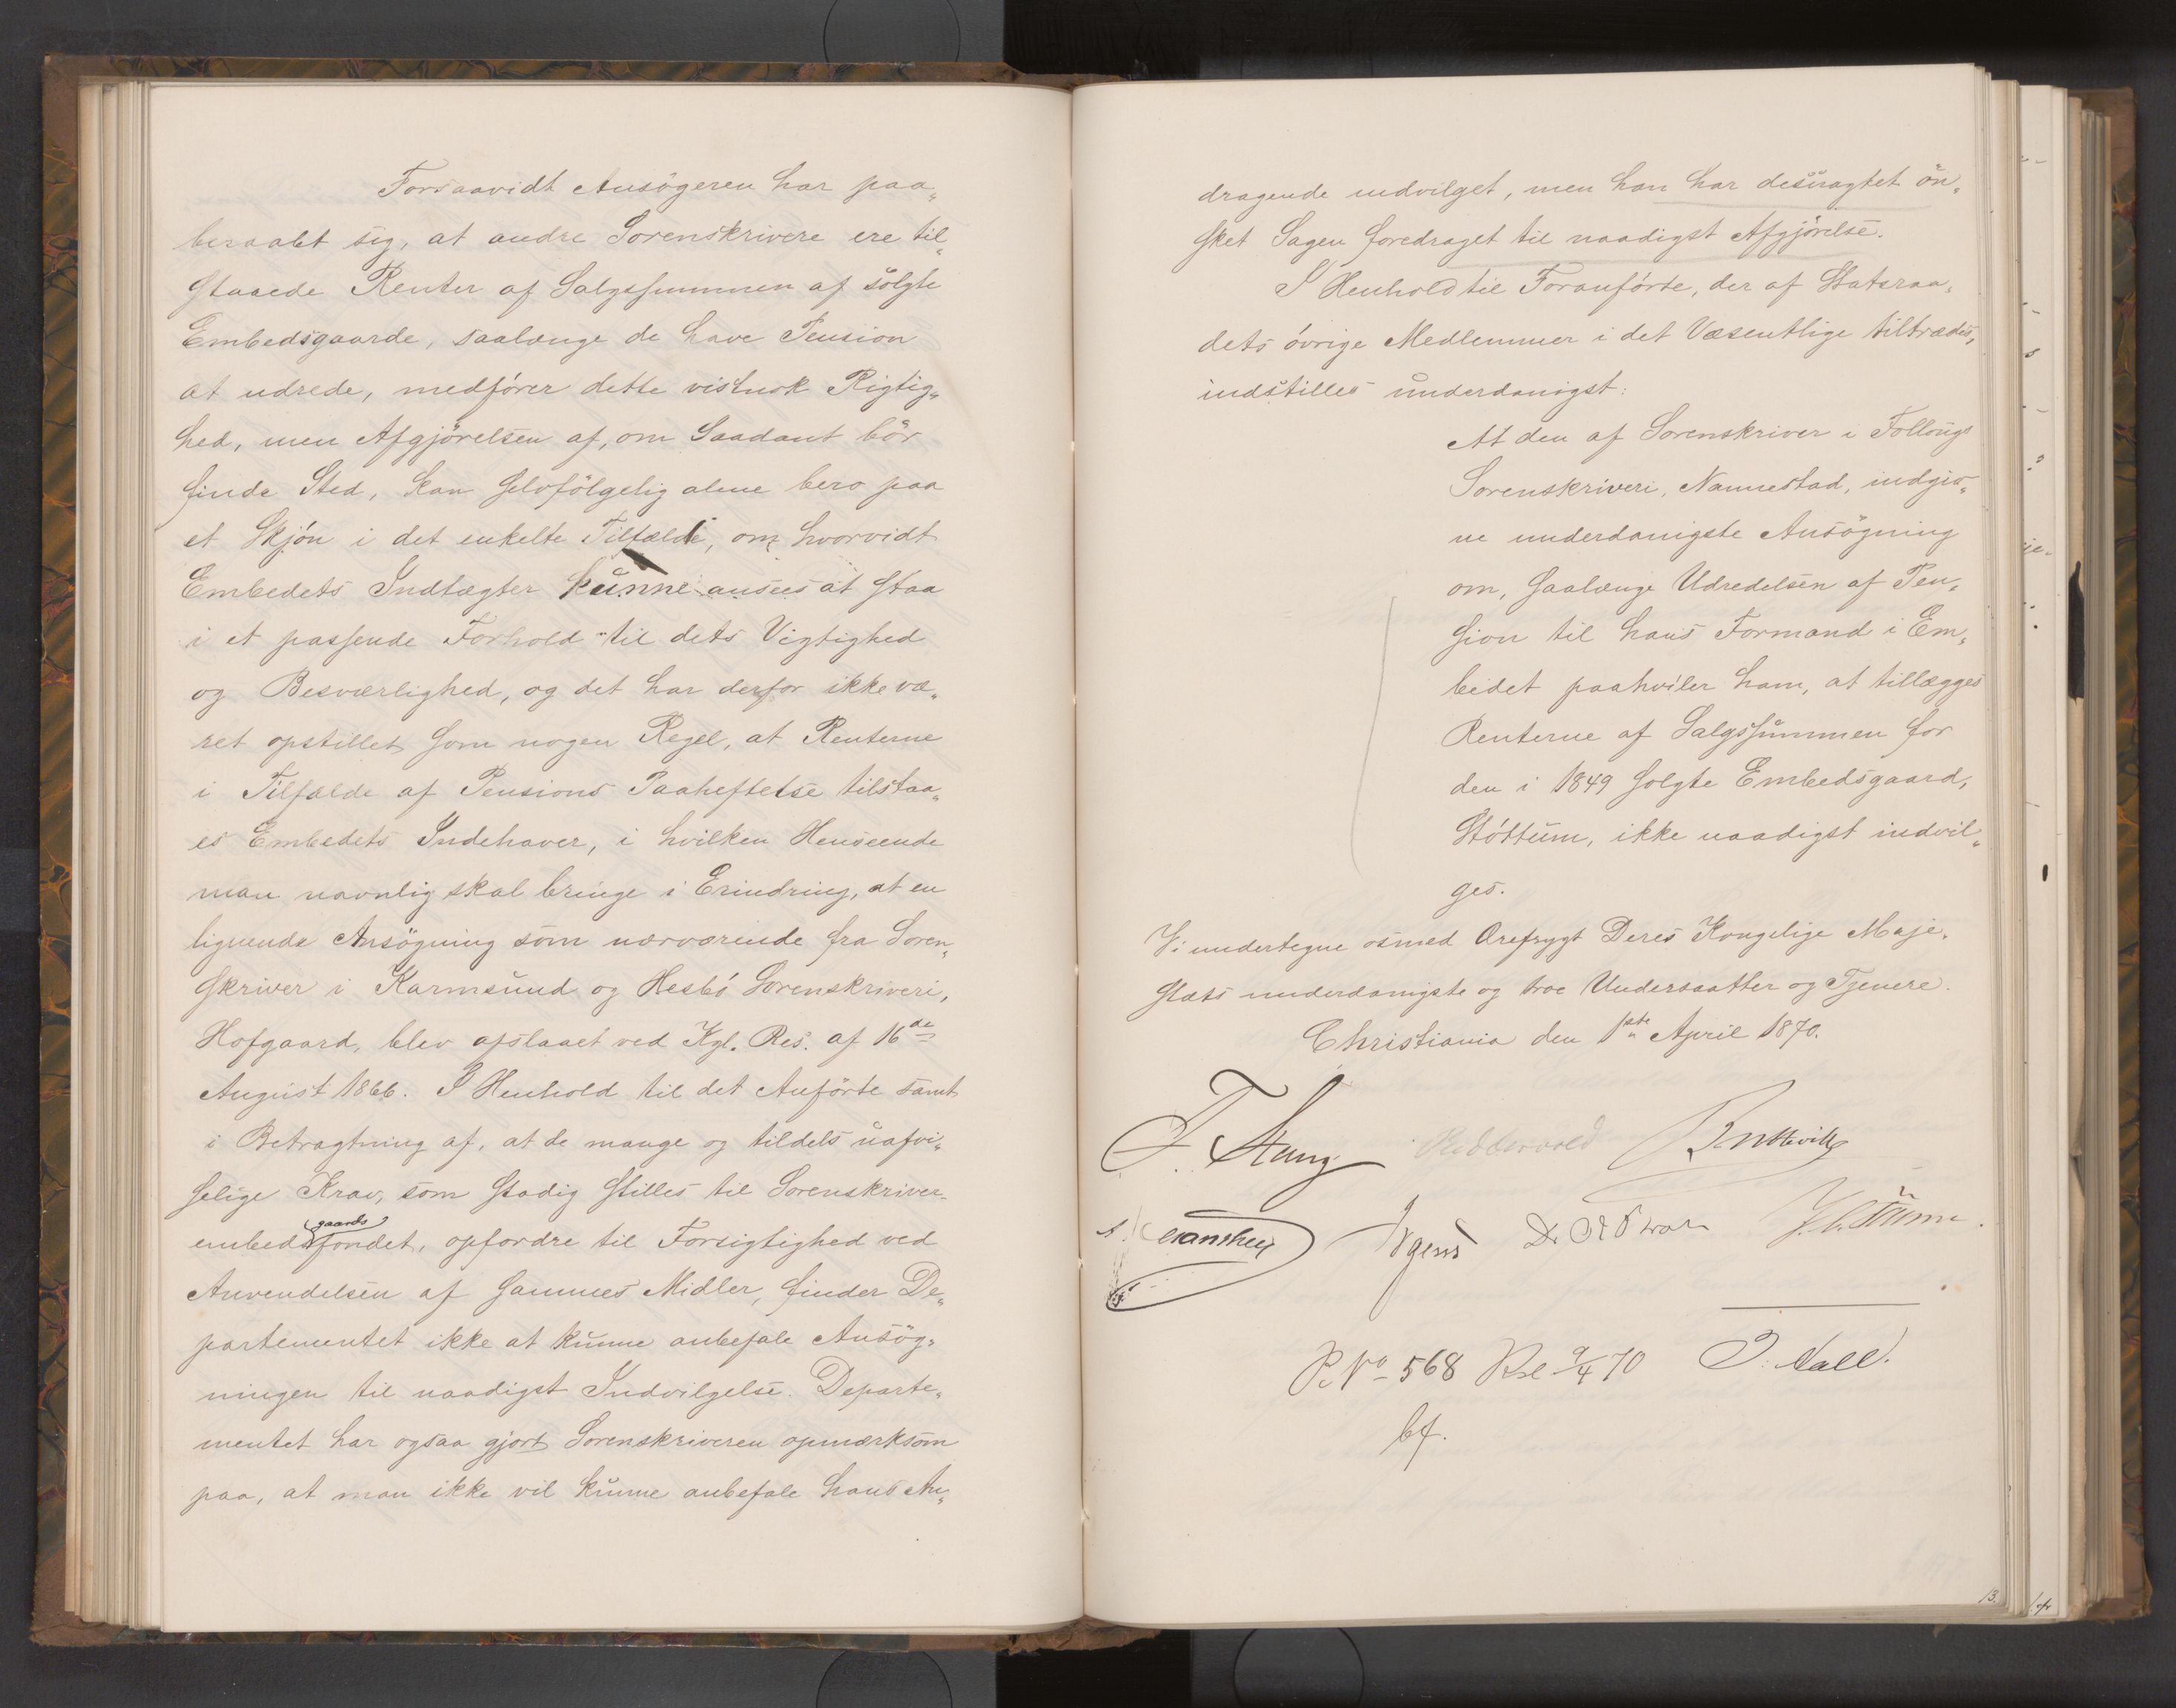 Forsaavidt Ansögeren har paa„
beraabt sig, at andre Sorenskrivere ere til„
staaede Renter af Salgssummen af solgte
Embedsgaarde, saalænge de have Pension
at udrede, medfører dette vistnok Rigtig„
hed, men Afgjörelsen af, om Saadant bör
finde Sted, kan selvfölgelig alene bero paa
et Skjön i det enkelte Tilfælde, om hvorvidt
Embedets Indtægter kunne ansees at staa
i et passende Forhold til dets Vigtighed
og Besværlighed, og det har derfor ikke væ„
ret opstillet som nogen Regel, at Renterne
i Tilfælde af Pensions Paaheftelse tilstaa„
es Embedets Indehaver, i hvilken Henseende
man navnlig skal bringe i Erindring, at en
lignende Ansögning som nærværende fra Soren„
skriver i Karmsund og Hesbö Sorenskriveri,
Hofgaard, blev afslaaet ved Kgl. Res. af 16de
August 1866. I Henhold til det Anförte samt
i Betragtning af, at de mange og tildels uafvi„
selige Krav, som stadig stilles til Sorenskriver-
embedsgaardsfondet, opfordre til Forsigtighed ved
Anvendelsen af sammes Midler, finder De„
partementet ikke at kunne anbefale Ansög„
ningen til naadigst Indvilgelse. Departe„
mentet har ogsaa gjort Sorenskriveren opmærksom
paa, at man ikke vil kunne anbefale hans An„
dragende indvilget, men han har desuagtet ön„
sket Sagen foredraget til naadigst Afgjörelse.
I Henhold til Foranförte, der af Statsraa„
dets övrige Medlemmer i det Væsentlige tiltrædes,
indstilles underdanigst:
At den af Sorenskriver i Follougs
Sorenskriveri, Nannestad, indgiv„
ne underdanigste Ansögning
om, saalænge Udredelsen af Pen„
sion til hans Formand i Em„
bedet paahviler ham, at tillægges
Renterne af Salgssummen for
den i 1849 solgte Embedsgaard,
Stöttum, ikke naadigst indvil„
ges.
Vi undertegne os med Ærefrygt Deres Kongelige Maje„
stæts underdanigste og troe Undersaatter og Tjenere.
Christiania den 1ste April 1870.
F. Stang Riddervold Bretteville
Manthey Irgens
P. No 568 Rsl 9/4 70
bf.